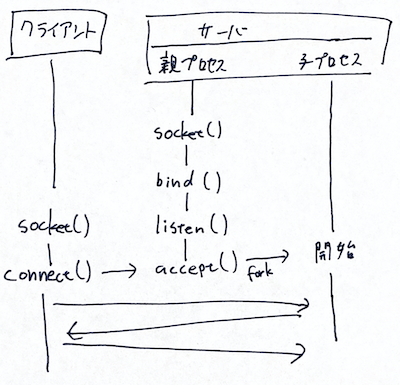 クライアント
サーバ
親プロセス 子プロセス
socket()
bind()
socket() listen() 開始
connect() accept() fork